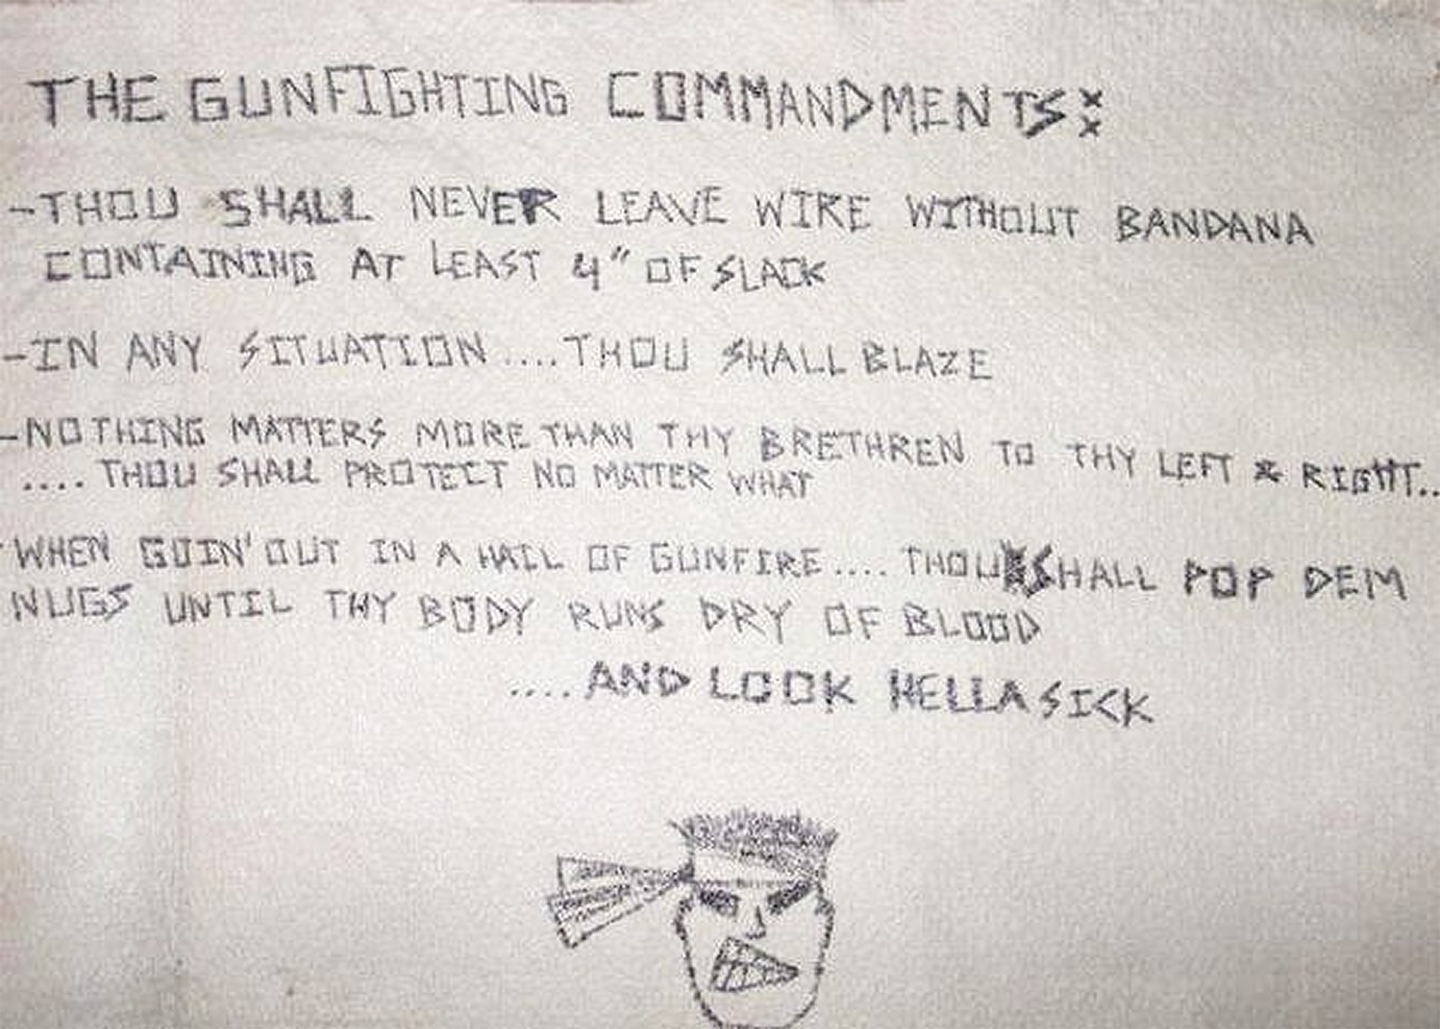 THE GUNFIGHTING COMMANDMENTS:
-THOU SHALL NEVER LEAVE WIRE WITHOUT BANDANA
CONTAINING AT LEAST 4" OF SLACK
-IN ANY SITUATION....THOU SHALL BLAZE
-NOTHING MATTERS MORE THAN THY BRETHREN TO THY LEFT & RIGHT..
....THOU SHALL PROTECT NO MATTER WHAT
-WHEN GOIN' OUT IN A HAIL OF GUNFIRE.... THOU SHALL POP DEM
NUGS UNTIL THY BODY RUNS DRY OF BLOOD
....AND LOOK HELLA SICK